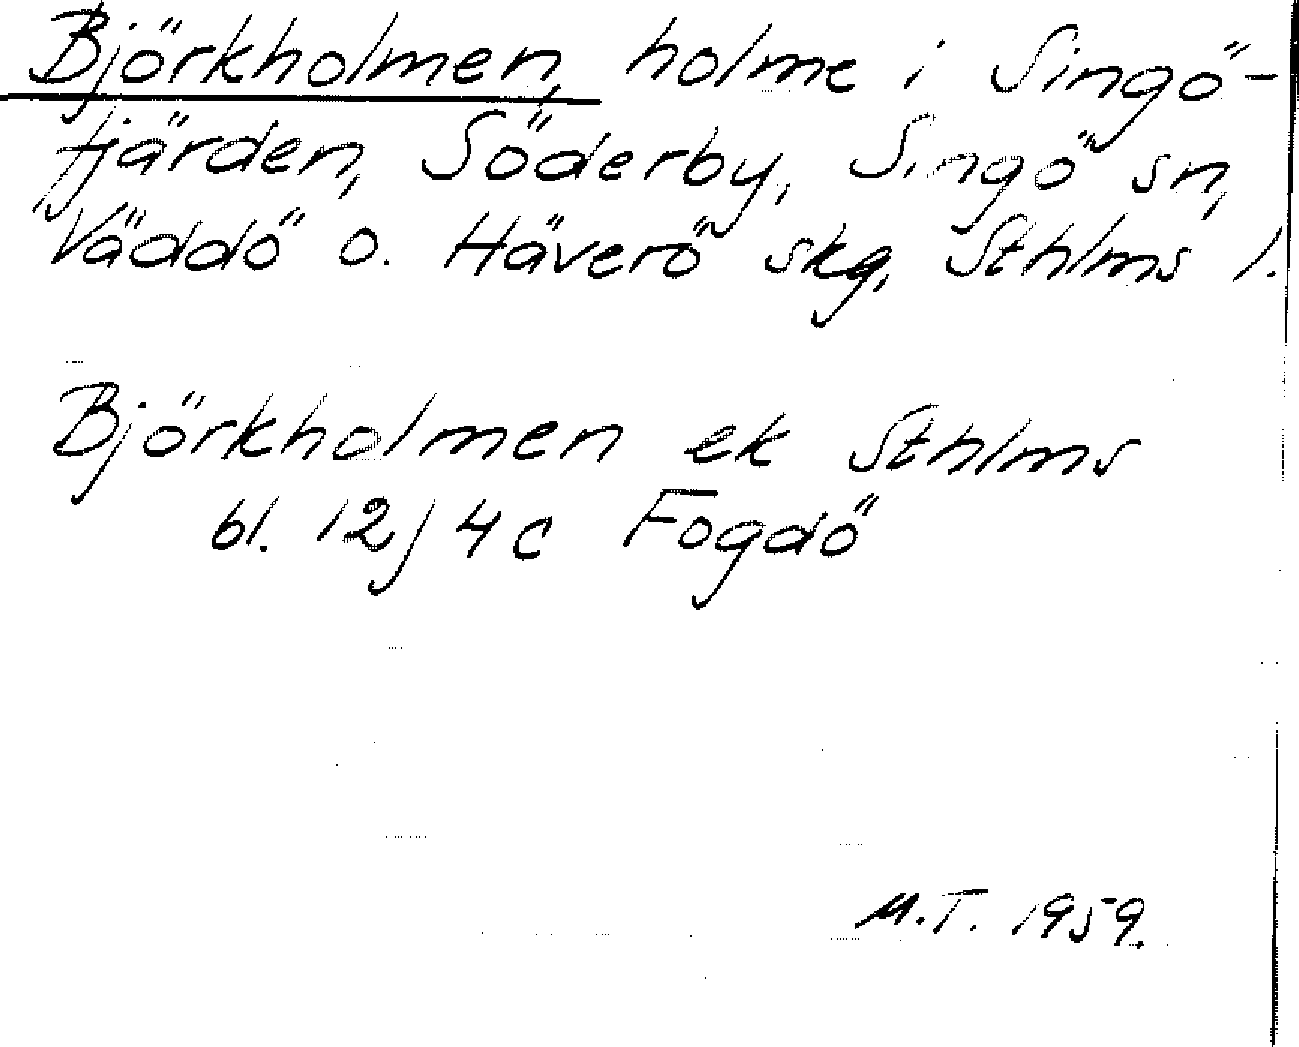 Björkholmen, holme i Singö-
fjärden, Söderby, Singö sn,
Väddö o. Häverö skg, Sthlms l.
Björkholmen ek Sthlms
bl. 12J 4c Fogdö
M.T. 1959.